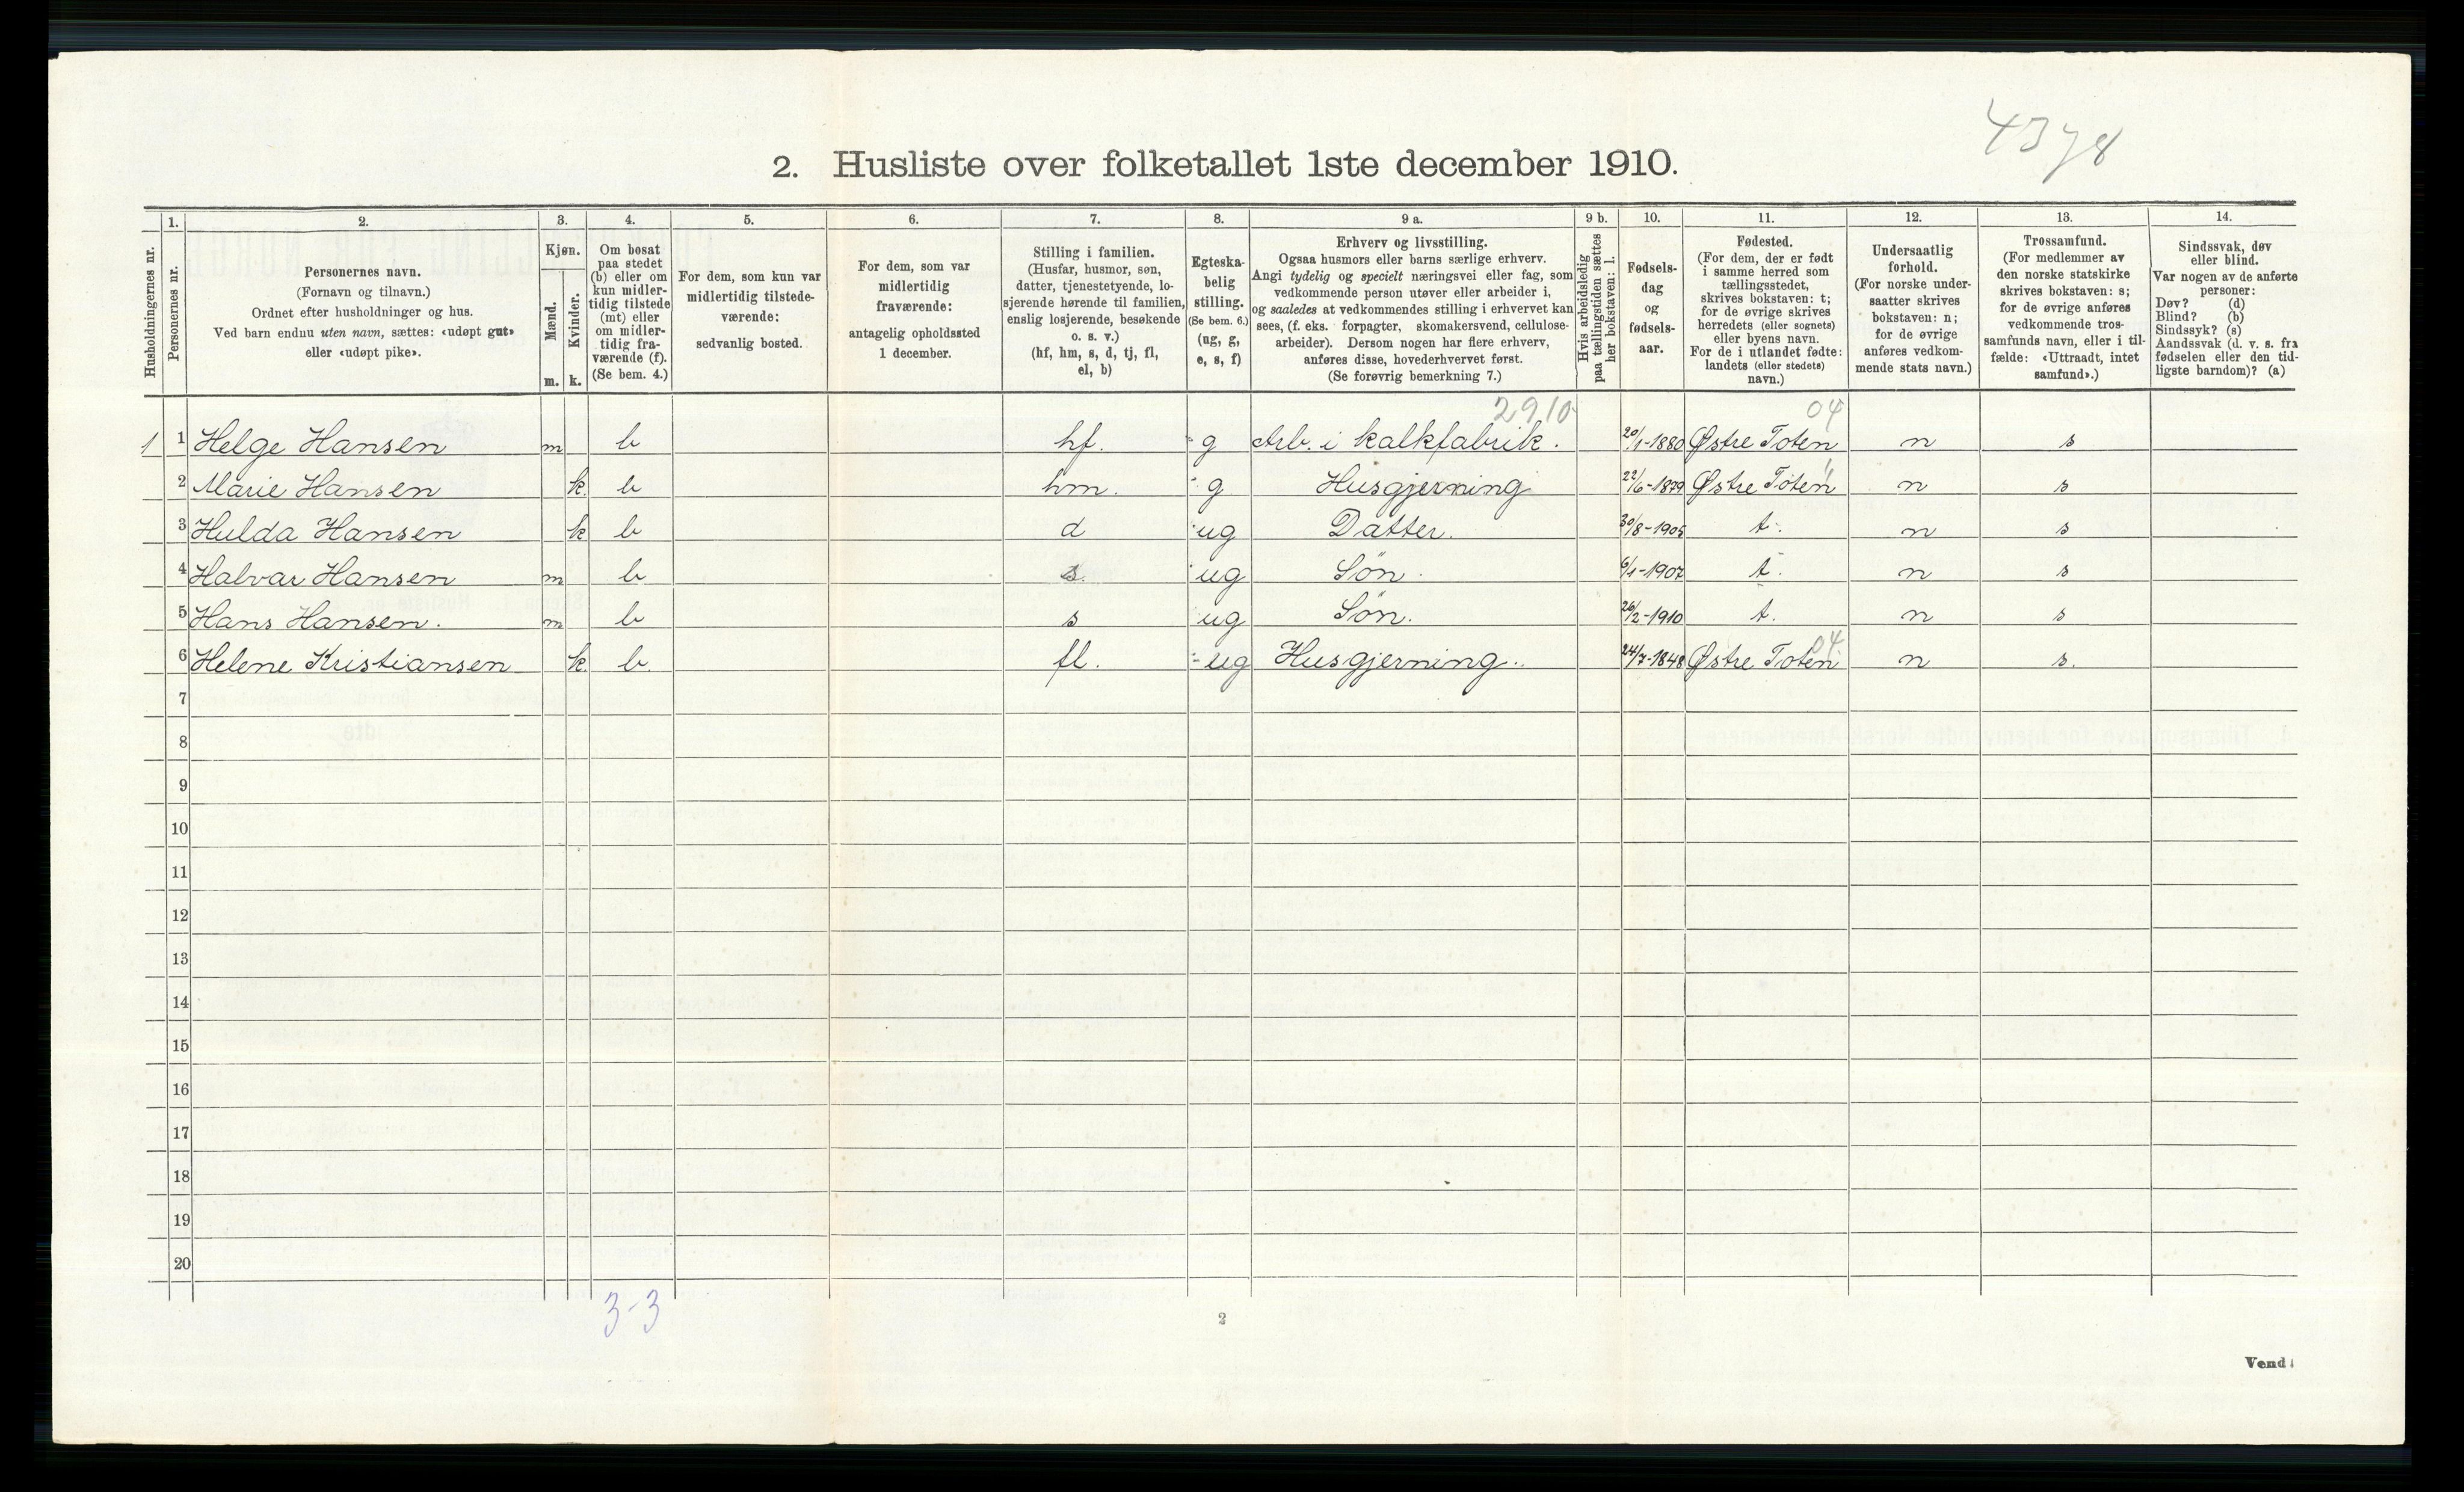 4378
2. Husliste over folketallet 1ste december 1910.
Husholdningernes nr.
1.
Personernes nr.
2.
Personernes navn.
(Fornavn og tilnavn.)
Ordnet efter husholdninger og hus.
Ved barn endnu uten navn, sættes: «udøpt gut»
eller «udøpt pike».
3.
Kjøn.
Mænd.
Kvinder.
m. k.
4.
Om bosat
paa stedet
(b) eller om
kun midler-
tidig tilstede
(mt) eller
om midler-
tidig fra-
værende (f).
(Se bem. 4.)
5.
For dem, som kun var
midlertidig tilstede-
værende:
sedvanlig bosted.
6.
For dem, som var
midlertidig
fraværende:
antagelig opholdssted
1 december.
7.
Stilling i familien.
(Husfar, husmor, søn,
datter, tjenestetyende, lo-
sjerende hørende til familien,
enslig losjerende, besøkende
o. s. v.)
(hf, hm, s, d, tj, fl,
el, b)
8.
Egteska-
belig
stilling.
(Se bem. 6.)
(ug, g,
e, s, f)
9 a.
Erhverv og livsstilling.
Ogsaa husmors eller barns særlige erhverv.
Angi tydelig og specielt næringsvei eller fag, som
vedkommende person utøver eller arbeider i,
og saaledes at vedkommendes stilling i erhvervet kan
sees, (f. eks. forpagter, skomakersvend, cellulose-
arbeider). Dersom nogen har flere erhverv,
anføres disse, hovederhvervet først.
(Se forøvrig bemerkning 7.)
9 b.
Hvis arbeidsledig
paa tællingstiden sættes
her bokstaven: l.
10.
Fødsels-
dag
og
fødsels-
aar.
11.
Fødested.
(For dem, der er født
i samme herred som
tællingsstedet,
skrives bokstaven: t;
for de øvrige skrives
herredets (eller sognets)
eller byens navn.
For de i utlandet fødte:
landets (eller stedets)
navn.)
12.
Undersaatlig
forhold.
(For norske under-
saatter skrives
bokstaven: n;
for de øvrige
anføres vedkom-
mende stats navn.)
13.
Trossamfund.
(For medlemmer av
den norske statskirke
skrives bokstaven: s;
for de øvrige anføres
vedkommende tros-
samfunds navn, eller i til-
fælde: «Uttraadt, intet
samfund».)
14.
Sindssvak, døv
eller blind.
Var nogen av de anførte
personer:
Døv? (d)
Blind? (b)
Sindssyk? (s)
Aandssvak (d. v. s. fra
fødselen eller den tid-
ligste barndom)? (a)
2910 04
1 1 Helge Hansen m b hf. g Arb. i kalkfabrik. 20/1-1880 Østre Toten n s
2 Marie Hansen k. b hm. g Husgjerning 22/6-1879 Østre Toten n s
3 Hulda Hansen k b d ug Datter. 30/8-1905 t. n s
4 Halvar Hansen m b s. ug Søn. 6/1-1907 t. n s
5 Hans Hansen. m b s ug Søn. 26/2-1910 t. n s
04
6 Helene Kristiansen k. b. fl. ug Husgjerning. 24/7-1848 Østre Toten n s.
7
8
9
10
11
12
13
14
15
16
17
18
19
20
3-3
2
Vend!